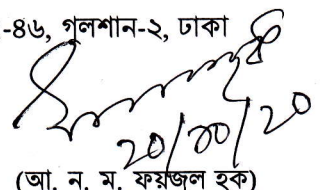 -৪৬, গুলশান-২, ঢাকা
২০/১০/২০
(আ. ন. ম. ফয়জল হক)